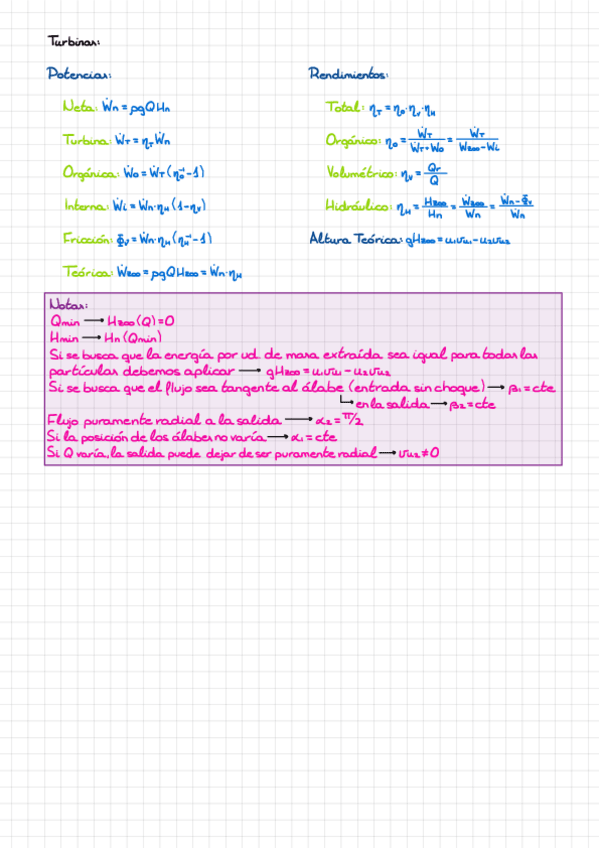 Turbinas:
Potencias:
Neta: Ẇn = ρgQHn
Turbina: ẆT = ηTẆn
Orgánica: Ẇo = ẆT(ηo⁻¹-1)
Interna: Ẇi = Ẇn·ηH(1-ηv)
Fricción: Φ̇v = Ẇn·ηH(ηH⁻¹-1)
Teórica: Ẇz∞ = ρgQHz∞ = Ẇn·ηH
Rendimientos:
Total: ηT = ηo·ηv·ηH
Orgánico: ηo = ẆT/(ẆT+Ẇo) = ẆT/(Ẇz∞-Ẇi)
Volumétrico: ηv = Qr/Q
Hidráulico: ηH = Hz∞/Hn = Ẇz∞/Ẇn = (Ẇn-Φ̇v)/Ẇn
Altura Teórica: gHz∞ = u1vu1-u2vu2
Notas:
Qmin → Hz∞(Q)=0
Hmin → Hn(Qmin)
Si se busca que la energía por ud. de masa extraída sea igual para todas las
partículas debemos aplicar → gHz∞ = u1vu1-u2vu2
Si se busca que el flujo sea tangente al álabe (entrada sin choque) → β1=cte
↳ en la salida → β2=cte
Flujo puramente radial a la salida → α2=π/2
Si la posición de los álabes no varía → α1=cte
Si Q varía, la salida puede dejar de ser puramente radial → vu2≠0